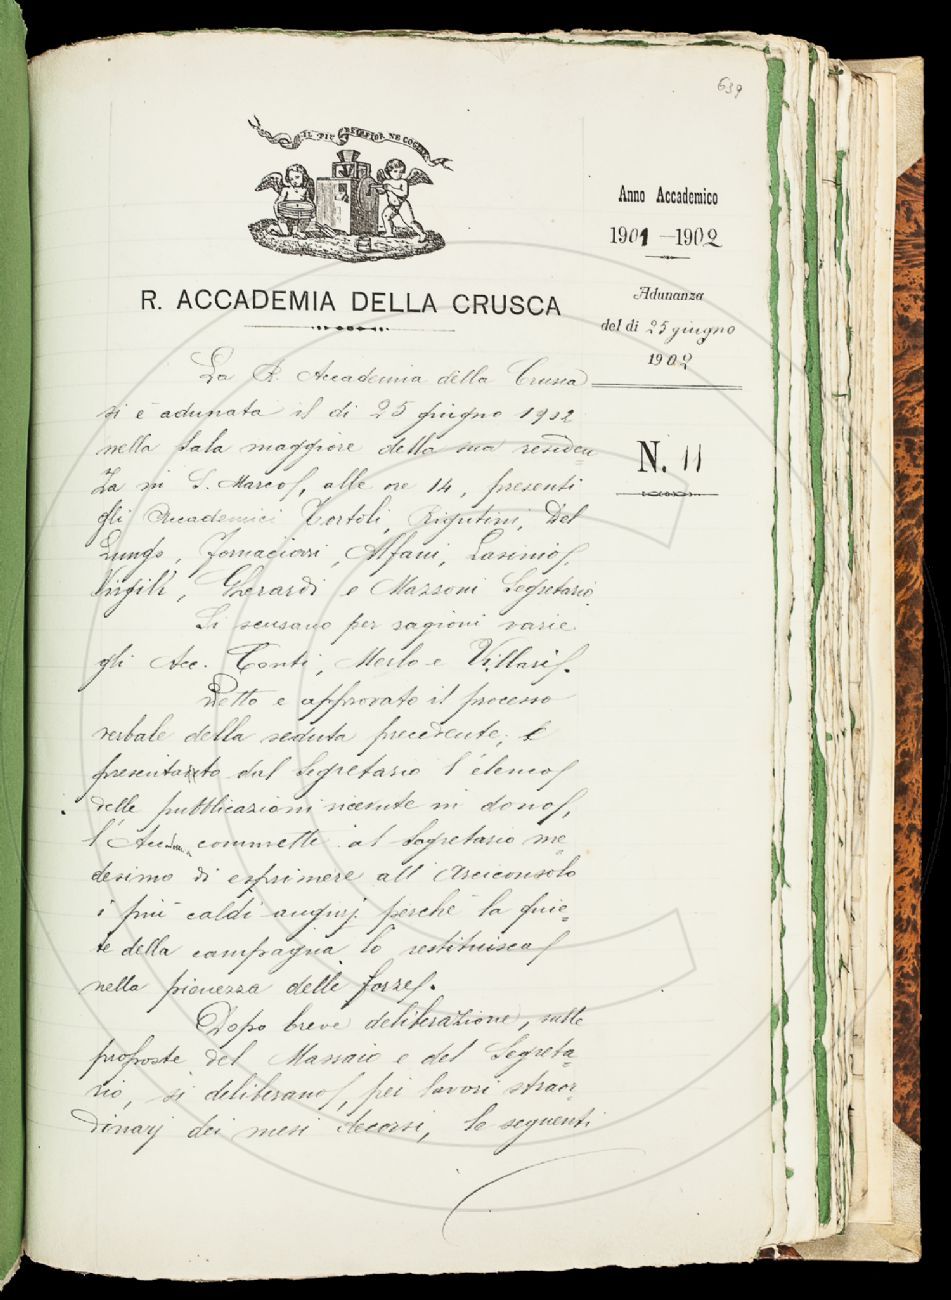 639
IL PIÙ BEL FIOR NE COGLIE
Anno Accademico
1901-1902
R. ACCADEMIA DELLA CRUSCA
Adunanza
del dì 25 giugno
1902
N. 11
La R. Accademia della Crusca
si è adunata il dì 25 giugno 1902
nella sala maggiore della sua residen=
za in S. Marco, alle ore 14, presenti
gli Accademici Tortoli, Rigutini, Del
Lungo, Fornaciari, Alfani, Lasinio,
Virgilî, Gherardi e Mazzoni Segretario.
Si scusano per ragioni varie
gli Acc. Conti, Merlo e Villari.
Letto e approvato il processo
verbale della seduta precedente, e
presentato dal Segretario l'elenco
delle pubblicazioni ricevute in dono,
l'Accademia commette al Segretario me=
desimo di esprimere all'Arciconsolo
i più caldi augurj perchè la quie=
te della campagna lo restituisca
nella pienezza delle forze.
Dopo breve deliberazione, sulle
proposte del Massaio e del Segreta=
rio, si deliberano, pei lavori straor=
dinarj dei mesi decorsi, le seguenti